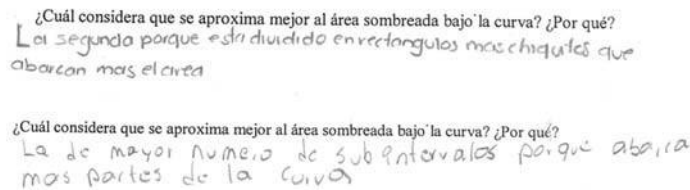 ¿Cuál considera que se aproxima mejor al área sombreada bajo la curva? ¿Por qué?
La segunda porque esta dividido en rectangulos mas chiquitos que
abarcan mas el area
¿Cuál considera que se aproxima mejor al área sombreada bajo la curva? ¿Por qué?
La de mayor numero de subintervalos porque abarca
mas partes de la curva